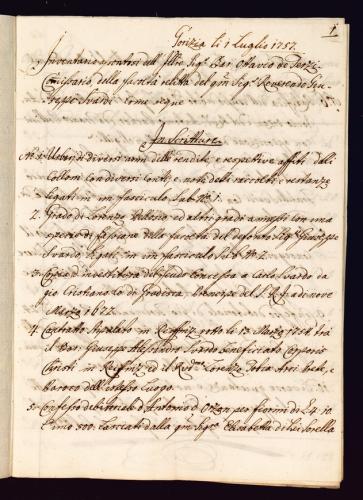 1
Gorizia li 1 Luglio 1757.
Inventario giontovi dell' Illmo Sigr Bar: Ottavio de Terzi
Comissario della facoltà relitta del qm Sigr Reverendo Giu=
seppe Suardi come segue
In Scritture
No 1. Urbarj di diversi anni delle rendite, e respettive affitti delli
Colloni con diversi Conti, e note delli raccolti, e restanze
legati in un fascicolo Sub No 1.
2. Grado di Lorenzo ed altri gradi annessi con una
specie di della facoltà del defonto Sigr Giuseppe
Suardo, legati in un fascicolo Sub No 2.
3. Copia d'investitura del feudo concessa a Carlo Suardo da
gio Cristiano di Gradisca, Prencipe del S. R. I. di nove
Marzo 1672.
4. Contratto stipulato in Reiffniz sotto li 13 Marzo 1756 trà
il Bar: Giuseppe Alessandro Suardo Beneficiato Corporis
Christi in Reiffniz ed il Revdo Lorenzo
Paroco dell' istesso Luogo.
5. Confesso debitoriale d'Antonio per fiorini
500. lasciati dalla qm Sigra Elisabetta di lui sorella